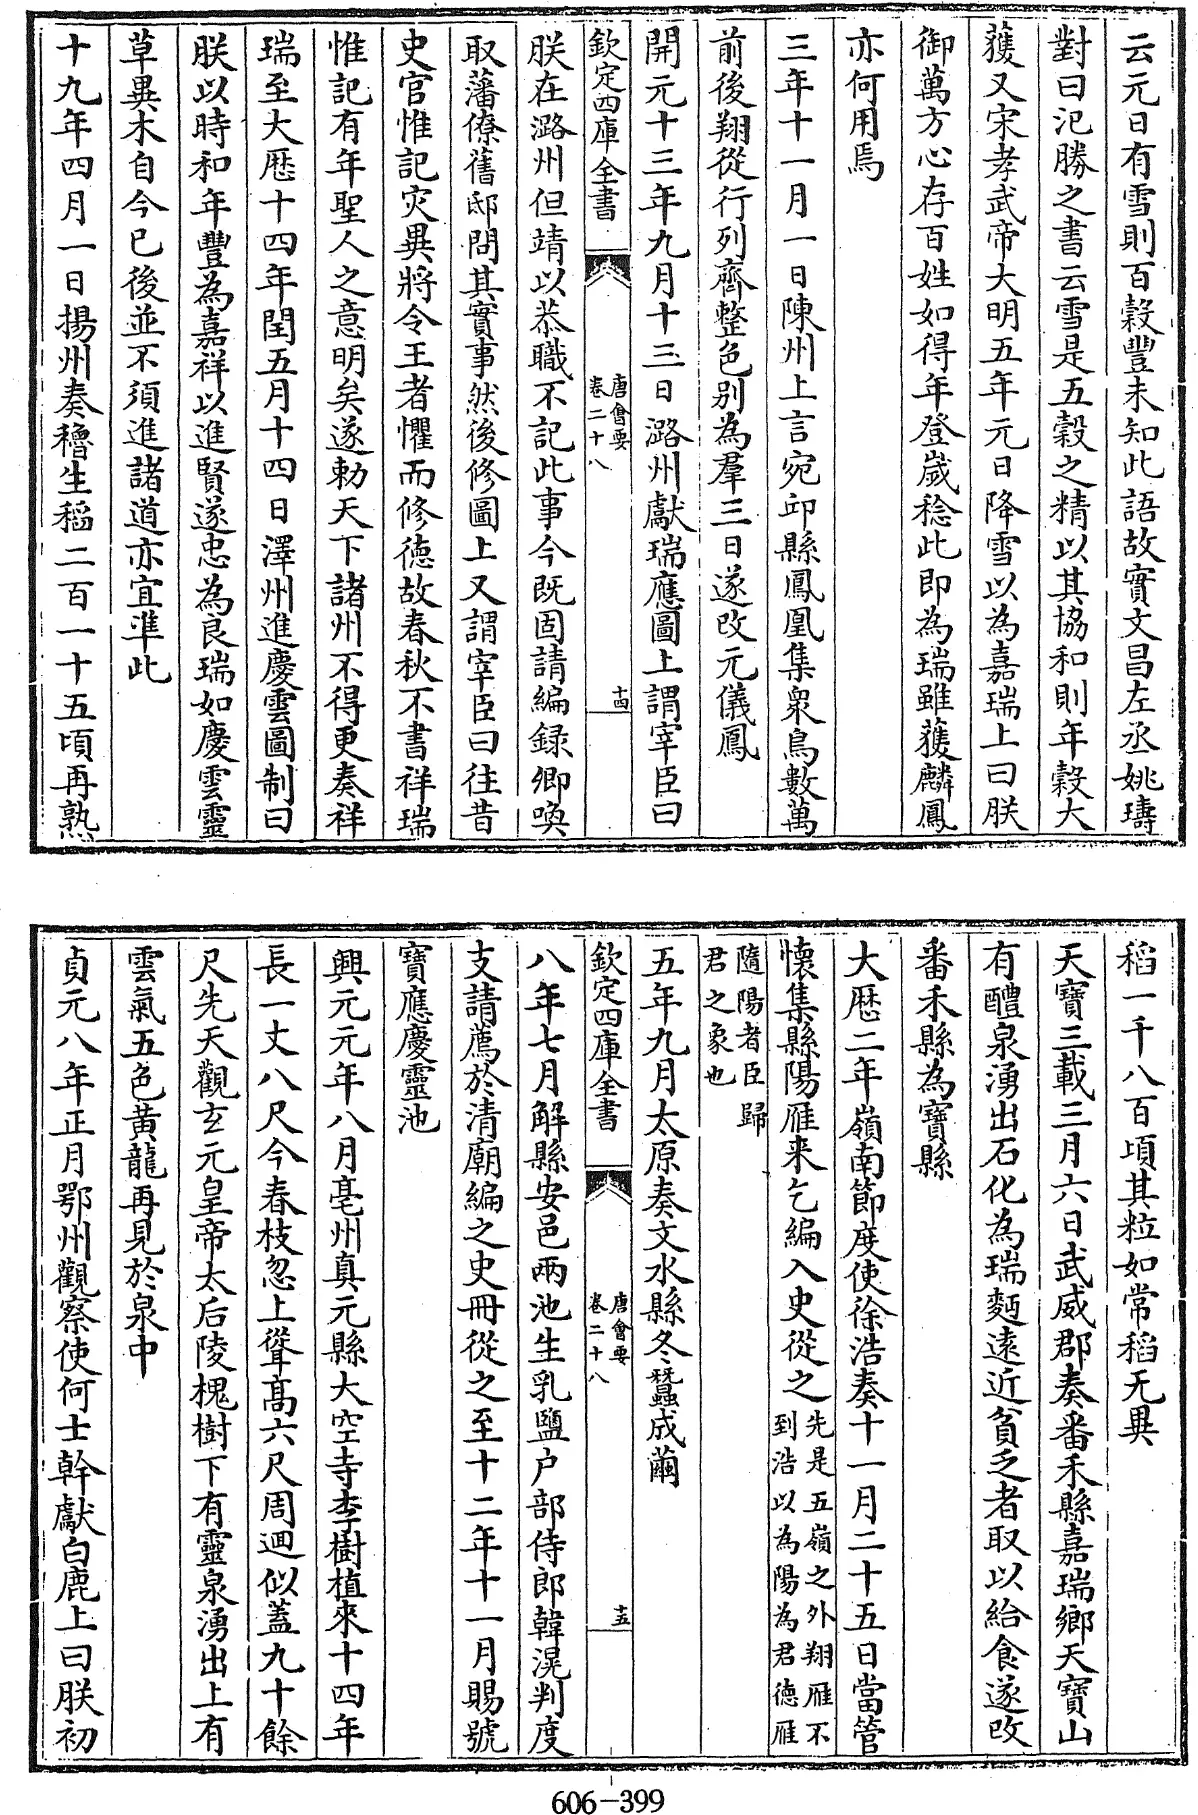 云元日有雪則百穀豐未知此語故實文昌左丞姚璹
對曰氾勝之書云雪是五穀之精以其協和則年穀大
獲又宋孝武帝大明五年元日降雪以為嘉瑞上曰朕
御萬方心存百姓如得年登歲稔此即為瑞雖獲麟鳳
亦何用焉
三年十一月一日陳州上言宛邱縣鳳凰集衆鳥數萬
前後翔從行列齊整色别為羣三日遂改元儀鳳
開元十三年九月十三日潞州獻瑞應圖上謂宰臣曰
欽定四庫全書
唐會要
卷二十八
十四
朕在潞州但靖以恭職不記此事今既固請編録卿喚
取藩僚舊邸問其實事然後修圖上又謂宰臣曰往昔
史官惟記灾異將令王者懼而修德故春秋不書祥瑞
惟記有年聖人之意明矣遂勅天下諸州不得更奏祥
瑞至大歴十四年閏五月十四日澤州進慶雲圖制曰
朕以時和年豐為嘉祥以進賢遂忠為良瑞如慶雲靈
草異木自今已後並不須進諸道亦宜準此
十九年四月一日揚州奏穭生稻二百一十五頃再熟
稻一千八百頃其粒如常稻无異
天寶三載三月六日武威郡奏番禾縣嘉瑞鄉天寶山
有醴泉湧出石化為瑞麪遠近貧乏者取以給食遂改
番禾縣為寶縣
大歴二年嶺南節度使徐浩奏十一月二十五日當管
懷集縣陽雁来乞編入史從之先是五嶺之外翔雁不
到浩以為陽為君德雁
隨陽者臣歸
君之象也
五年九月太原奏文水縣冬蠶成繭
欽定四庫全書
唐會要
卷二十八
十五
八年七月解縣安邑兩池生乳鹽户部侍郎韓滉判度
支請薦於清廟編之史冊從之至十二年十一月賜號
寶應慶靈池
興元元年八月亳州真元縣大空寺李樹植來十四年
長一丈八尺今春枝忽上聳高六尺周迴似蓋九十餘
尺先天觀玄元皇帝太后陵槐樹下有靈泉湧出上有
雲氣五色黄龍再見於泉中
貞元八年正月鄂州觀察使何士幹獻白鹿上曰朕初
606-399